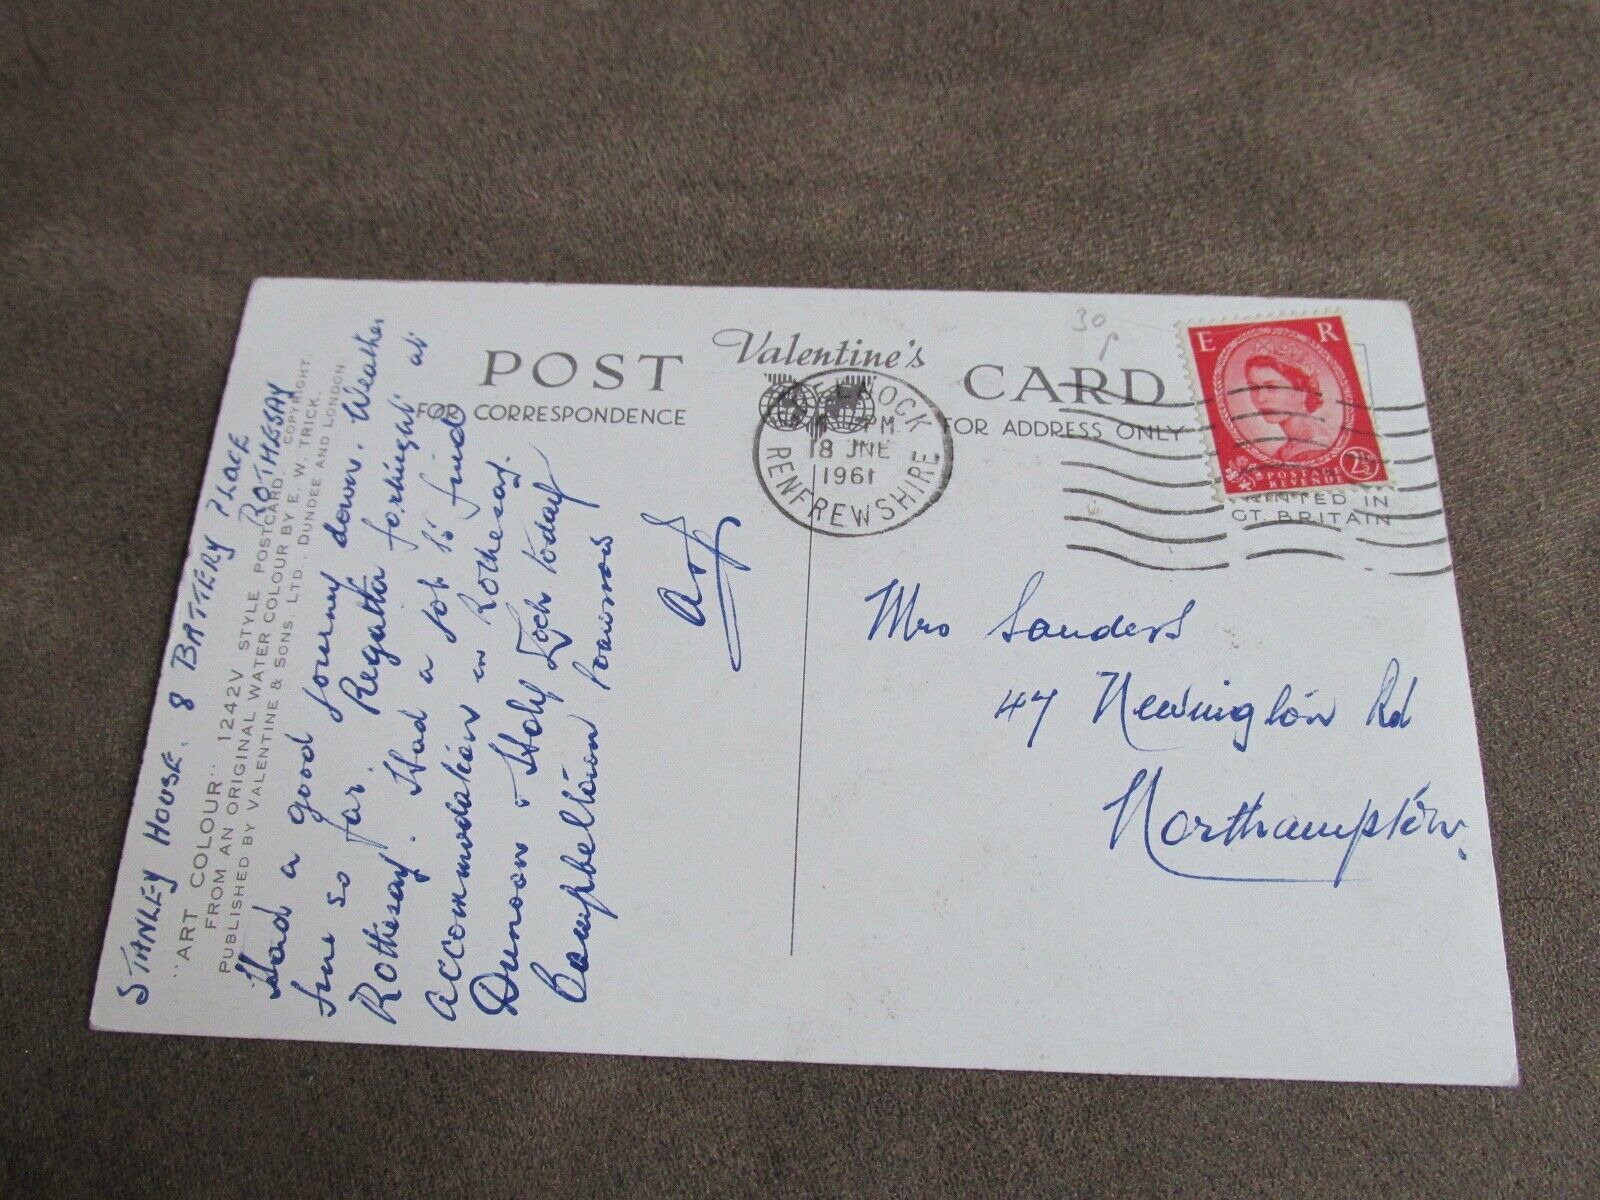 POST Valentine's CARD
FOR CORRESPONDENCE
FOR ADDRESS ONLY
STANLEY HOUSE. 8 BATTERY PLACE
ROTHESAY
"ART COLOUR" 1242V STYLE POSTCARD. COPYRIGHT.
FROM AN ORIGINAL WATER COLOUR BY E. W. TRICK.
PUBLISHED BY VALENTINE & SONS. LTD., DUNDEE AND LONDON
Had a good journey down. Weather
fine so far. Regatta fortnight at
Rothesay. Had a job to find
accommodation in Rothesay.
Dunoon & Holy Loch today
Campbeltown tomorrow
30
P
E R
POSTAGE
REVENUE
2½
PM
18 JNE
1961
RENFREWSHIRE
PRINTED IN
GT. BRITAIN
Mrs Sanders
47 Newington Rd
Northampton.